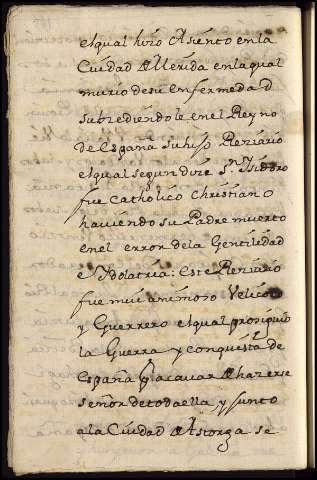 el qual hizo Asiento en la
Cuidad de Merida en la qual
murio de su enfermedad
subcediendole en el Reyno
de España su hijo Reziario
el qual segun dize Sn. Isidoro
fue Catholico Christiano
haviendo su Padre muerto
en el error de la Gentilidad
e Ydolatria: Este Reziario
fue mui animoso Velicoso
y Guerrero el qual prosiguio
la Guerra y conquista de
España p acavar de hazerse
señor de toda ella y junto
a la Ciudad de Astorga se